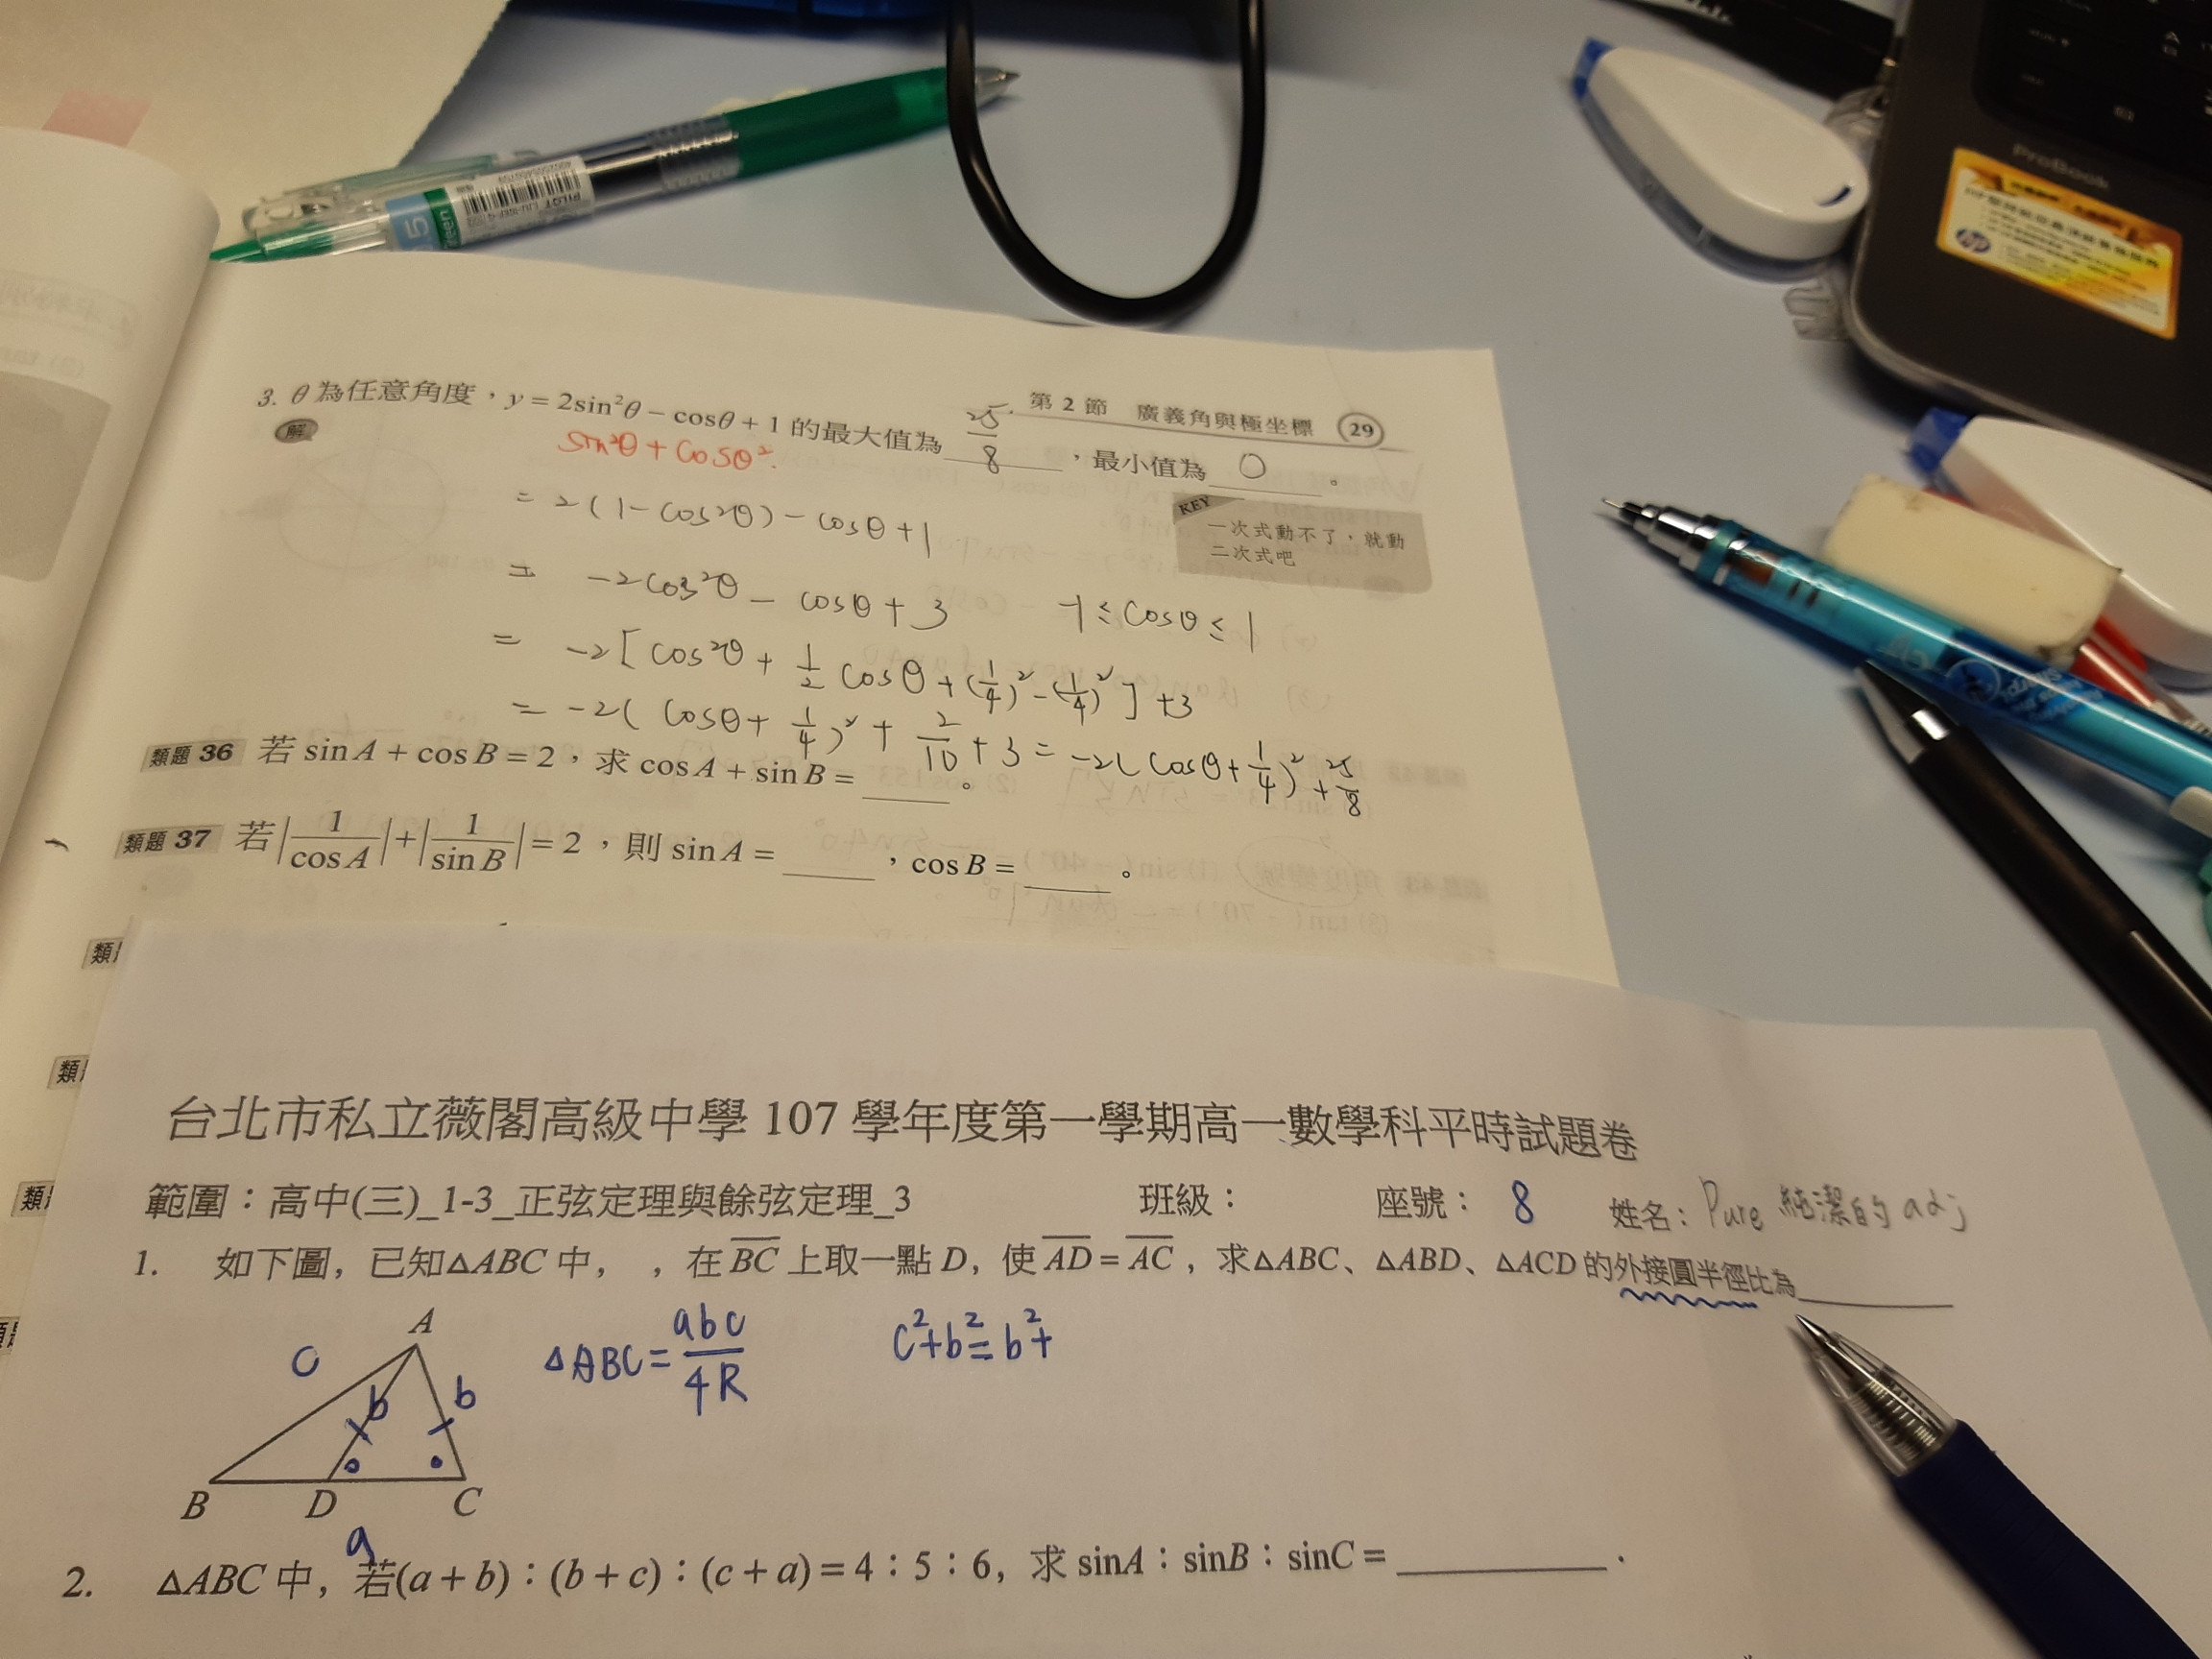 第 2 節 廣義角與極坐標 29
3. θ為任意角度，y = 2sin²θ − cosθ + 1 的最大值為 25/8 ，最小值為 0 。
解
sin²θ + cosθ².
= 2(1 - cos²θ) - cosθ + 1
KEY
一次式動不了，就動
二次式吧
= -2cos²θ - cosθ + 3 -1 ≤ cosθ ≤ 1
= -2[cos²θ + 1/2 cosθ + (1/4)² - (1/4)²] + 3
= -2(cosθ + 1/4)² + 2/16 + 3 = -2(cosθ + 1/4)² + 25/8
類題 36 若 sin A + cos B = 2，求 cos A + sin B = ____。
類題 37 若|1/cos A| + |1/sin B| = 2，則 sin A = ____，cos B = ____。
類
類
類
台北市私立薇閣高級中學 107 學年度第一學期高一數學科平時試題卷
範圍：高中(三)_1-3_正弦定理與餘弦定理_3 班級： 座號： 8 姓名： Pure 純潔的 adj
1. 如下圖，已知△ABC 中， ，在 BC 上取一點 D，使 AD = AC，求△ABC、△ABD、△ACD 的外接圓半徑比為____
A
c b b
△ABC = abc/4R c² + b² = b² +
B D C
a
2. △ABC 中，若(a + b)：(b + c)：(c + a) = 4：5：6，求 sinA：sinB：sinC = ____.
ProBook
hp
PILOT
0.5
Green